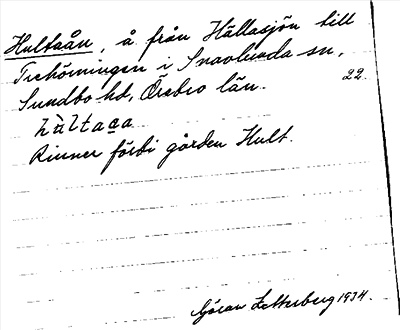 Hultaån, å från Hällasjön till
Trehörningen i Snavlunda sn,
Sundbo hd, Örebro län. 22.
hùltaɑ
Rinner förbi gården Hult.
Göran Zetterberg 1934.